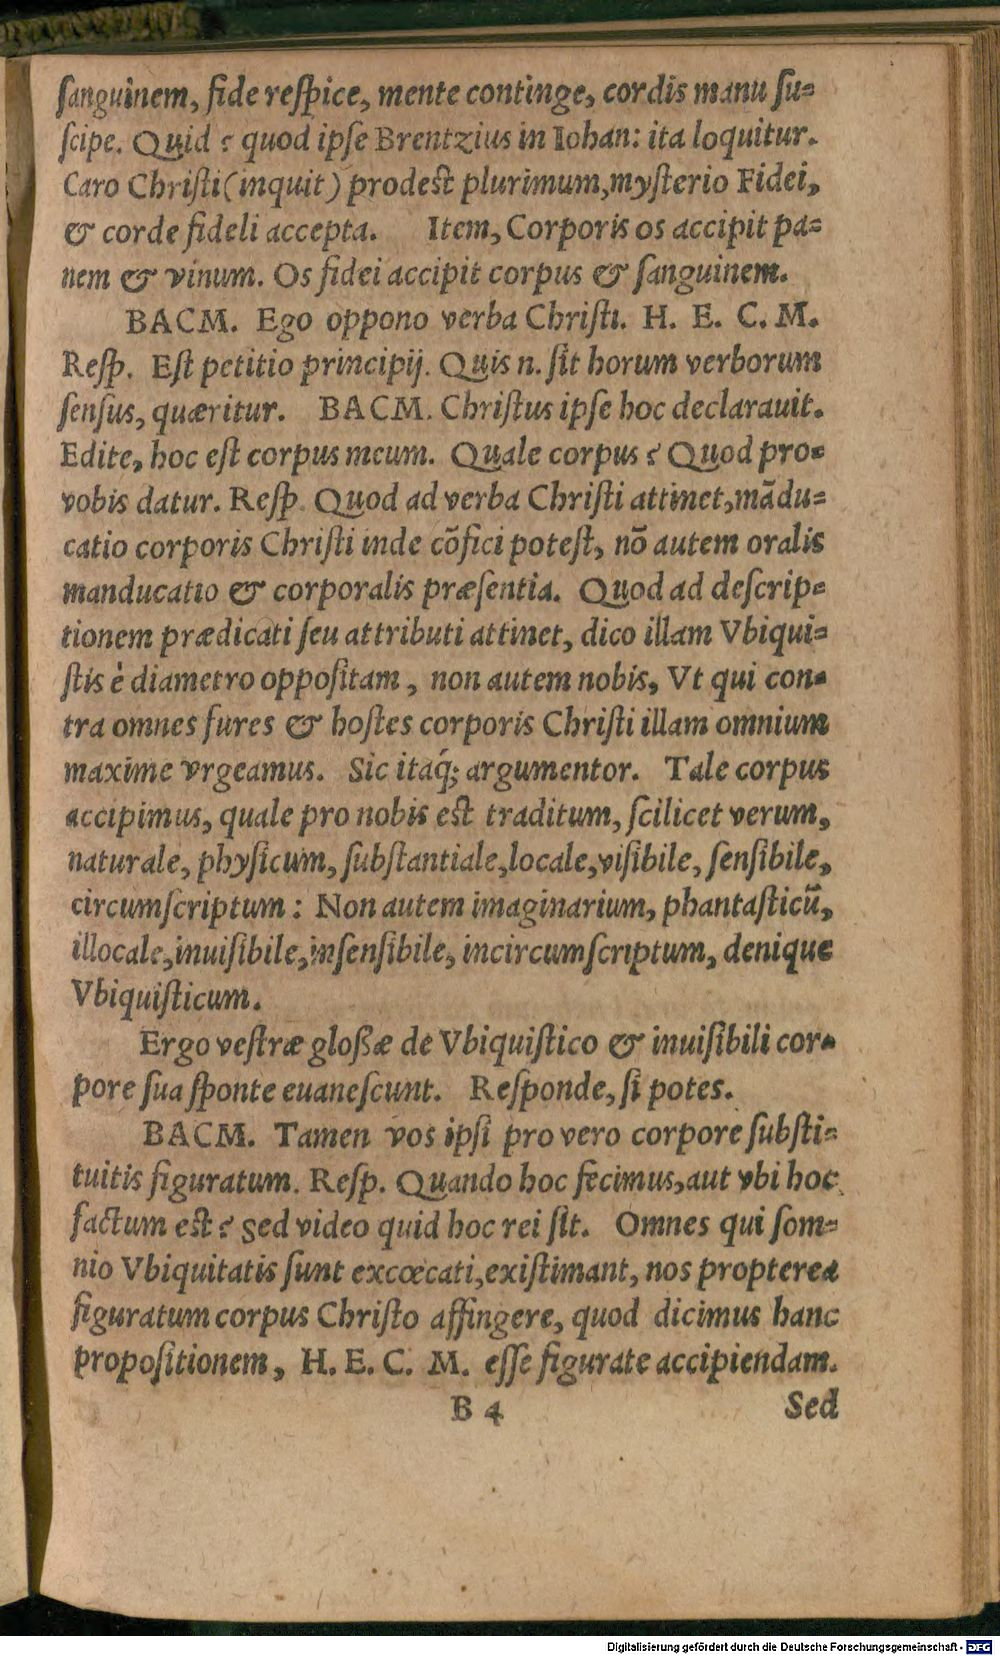 ſanguinem, fide reſpice, mente continge, cordis manu ſu=
ſcipe. Quid? quod ipſe Brentzius in Iohan: ita loquitur.
Caro Chriſti (inquit) prodest plurimum, myſterio Fidei,
& corde fideli accepta. Item, Corporis os accipit pa=
nem & vinum. Os fidei accipit corpus & ſanguinem.
BACM. Ego oppono verba Chriſti. H. E. C. M.
Reſp. Eſt petitio principij. Quis n. ſit horum verborum
ſenſus, quæritur. BACM. Chriſtus ipſe hoc declarauit.
Edite, hoc eſt corpus meum. Quale corpus? Quod pro=
vobis datur. Reſp. Quod ad verba Chriſti attinet, mãdu=
catio corporis Chriſti inde cõfici poteſt, nõ autem oralis
manducatio & corporalis præſentia. Quod ad deſcrip=
tionem prædicati ſeu attributi attinet, dico illam Vbiqui=
ſtis è diametro oppoſitam, non autem nobis, Vt qui con=
tra omnes fures & hoſtes corporis Chriſti illam omnium
maxime vrgeamus. Sic itaq́; argumentor. Tale corpus
accipimus, quale pro nobis est traditum, ſcilicet verum,
naturale, phyſicum, ſubſtantiale, locale, viſibile, ſenſibile,
circumſcriptum: Non autem imaginarium, phantaſticũ,
illocale, inuiſibile, inſenſibile, incircumſcriptum, denique
Vbiquiſticum.
Ergo veſtræ gloßæ de Vbiquiſtico & inuiſibili cor=
pore ſua ſponte euaneſcunt. Reſponde, ſi potes.
BACM. Tamen vos ipſi pro vero corpore ſubſti=
tuitis figuratum. Reſp. Quando hoc fecimus, aut vbi hoc
factum est? Sed video quid hoc rei ſit. Omnes qui ſom=
nio Vbiquitatis ſunt excœcati, exiſtimant, nos propterea
figuratum corpus Chriſto affingere, quod dicimus hanc
propoſitionem, H. E. C. M. eſſe figurate accipiendam.
B 4 Sed
Digitalisierung gefördert durch die Deutsche Forschungsgemeinschaft - DFG